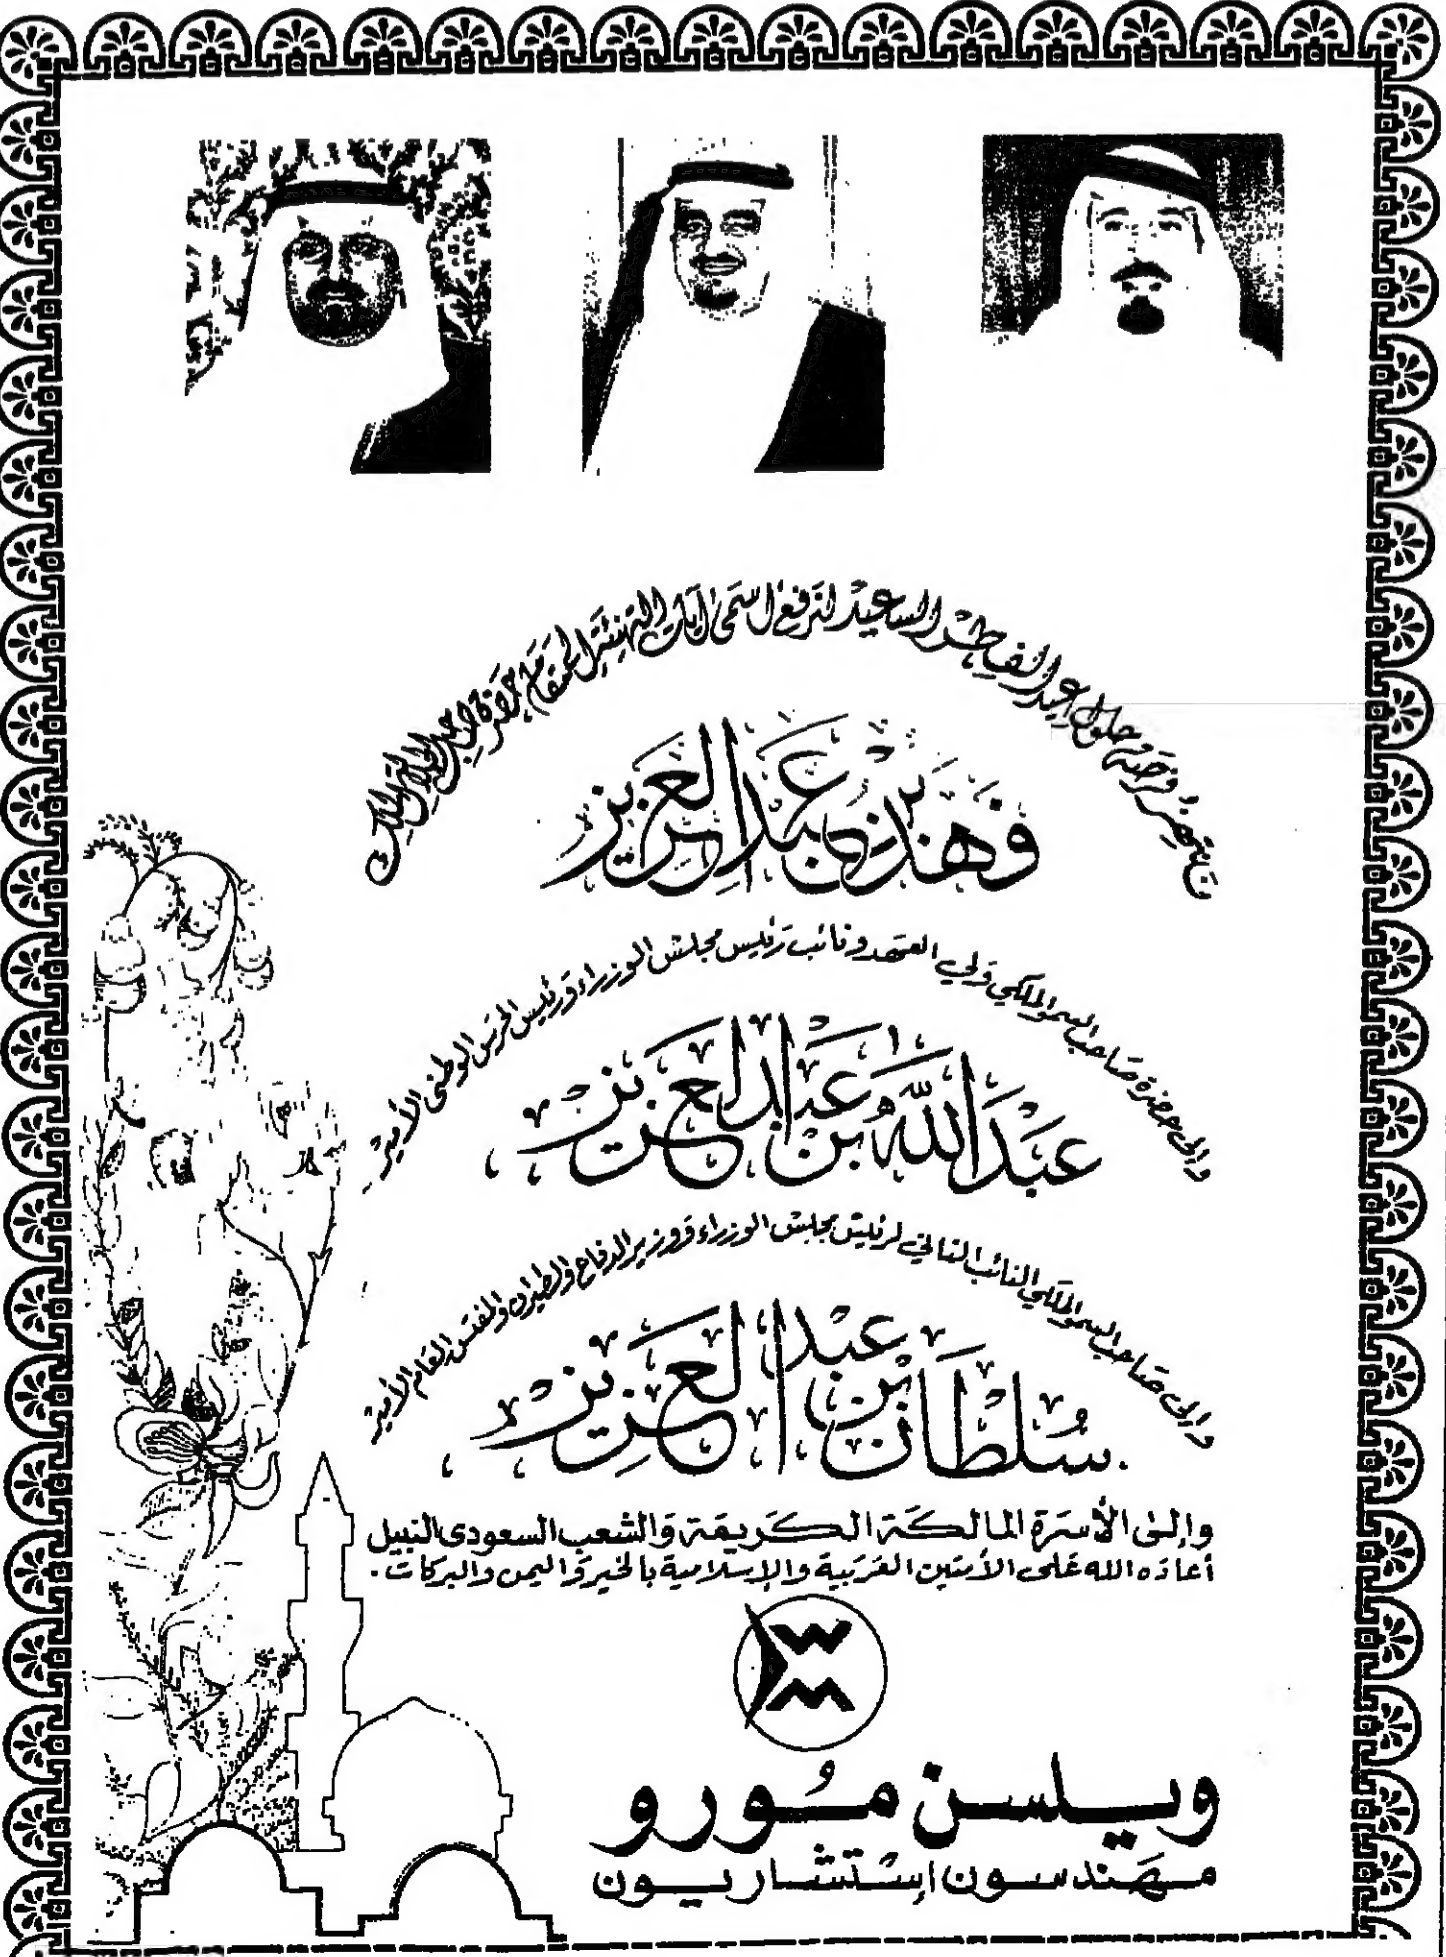 ننتهز فرصة حلول عيد الفطر السعيد لنرفع أسمى آيات التهنئة إلى مقام حضرة صاحب الجلالة الملك
فهد بن عبد العزيز
وإلى حضرة صاحب السمو الملكي ولي العهد ونائب رئيس مجلس الوزراء ورئيس الحرس الوطني الأمير
عبد الله بن عبد العزيز
وإلى صاحب السمو الملكي النائب الثاني لرئيس مجلس الوزراء ووزير الدفاع والطيران والمفتش العام الأمير
سلطان بن عبد العزيز
وإلى الأسرة المالكة الكريمة والشعب السعودي النبيل
أعاده الله على الأمتين العربية والإسلامية بالخير واليمن والبركات.
ويلسن مورو
مهندسون إستشاريون